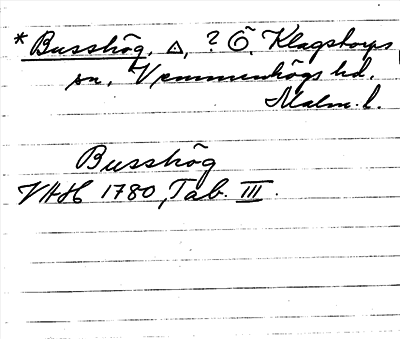 * Busshög, △, ? Ö. Klagstorps
sn, Vemmenhögs hd.
Malm. l.
Busshög
VAH 1780, Tab. III.